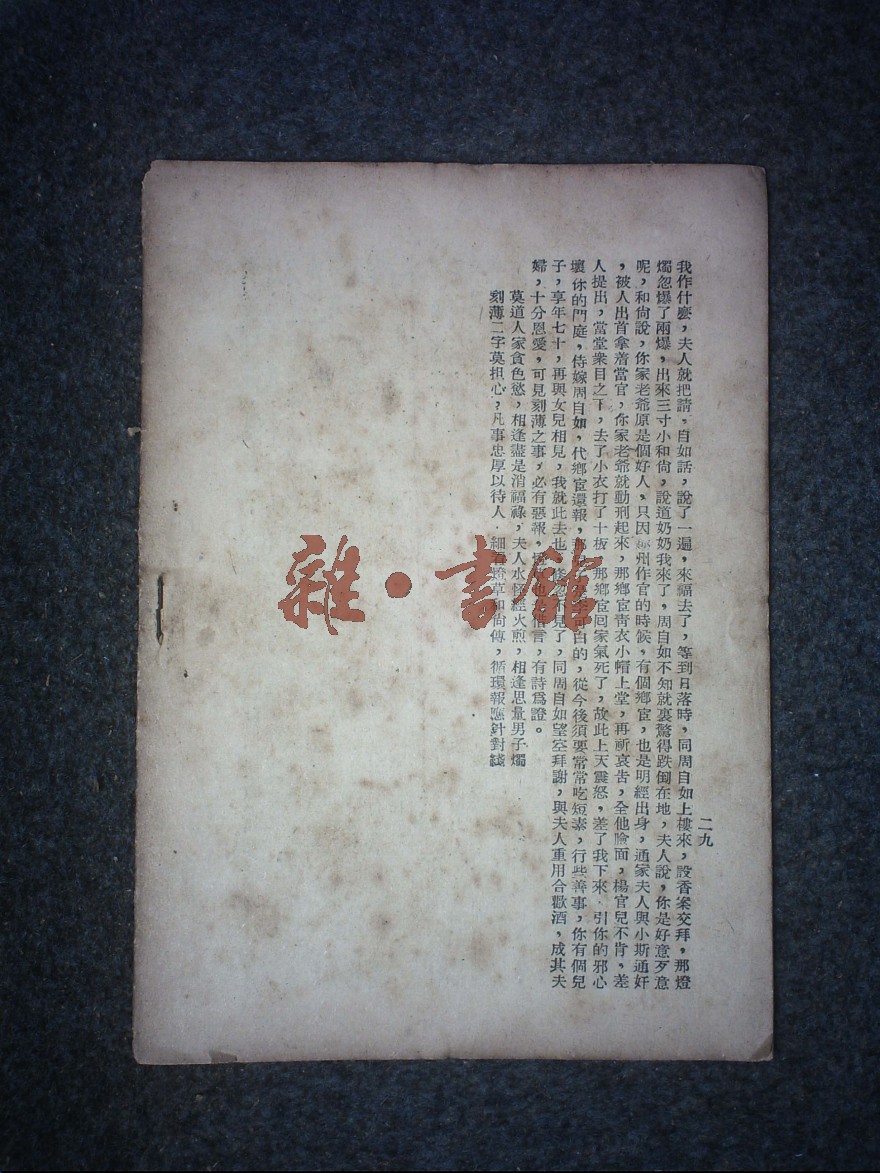 二九
我作什麽，夫人就把請，自如話，說了一遍，來福去了，等到日落時，同周自如上樓來，設香案交拜，那燈
燭忽爆了兩爆，出來三寸小和尙，說道奶奶我來了，周自如不知就裏驚得跌倒在地，夫人說，你是好意歹意
呢，和尙說，你家老爺原是個好人，只因 州作官的時候，有個鄉宦，也是明經出身，通家夫人與小斯通奸
，被人出首拿着當官，你家老爺就動刑起來，那鄉宦靑衣小帽上堂，再祈哀吿，全他臉面，楊官兒不肯，差
人提出，當堂衆目之下，去了小衣打了十板，那鄉宦囘家氣死了，故此上天震怒，差了我下來，引你的邪心
壞你的門庭，侍嫁周自如，代鄉宦還報， 白的，從今後須要常常吃短素，行些善事，你有個兒
子，享年七十，再與女兒相見，我就此去也， 忽不見了，同周自如望空拜謝，與夫人重用合歡酒，成其夫
婦，十分恩愛，可見刻薄之事，必有惡報， 言，有詩爲證。
莫道人家貪色慾，相逢盡是消福祿，夫人水怪經火煎，相逢思量男子燭
刻薄二字莫担心，凡事忠厚以待人．細看燈草和尙傳，循環報應針對綫
雜·書館